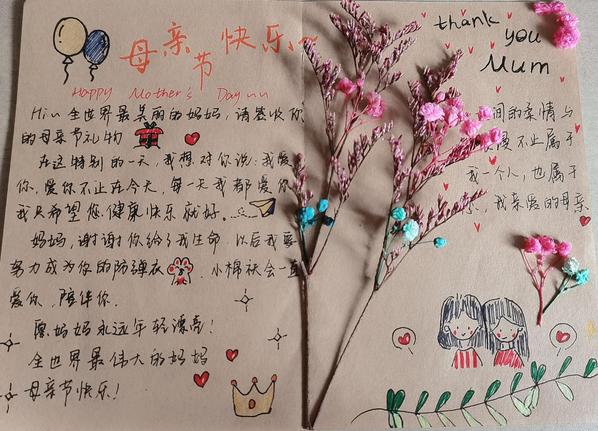 母亲节快乐~
Happy Mother's Day
Hi~ 全世界最美丽的妈妈，请签收你
的母亲节礼物
在这特别的一天，我想对你说：我爱
你，爱你不止在今天，每一天我都爱你
我只希望您健康快乐就好。
妈妈，谢谢你给了我生命，以后我要
努力成为你的防弹衣，小棉袄会一直
爱你、陪伴你。
愿妈妈永远年轻漂亮！
全世界最伟大的妈妈
母亲节快乐！
thank
you
Mum
间的亲情与
漫不止属于
我一个人，也属于
您，我亲爱的母亲